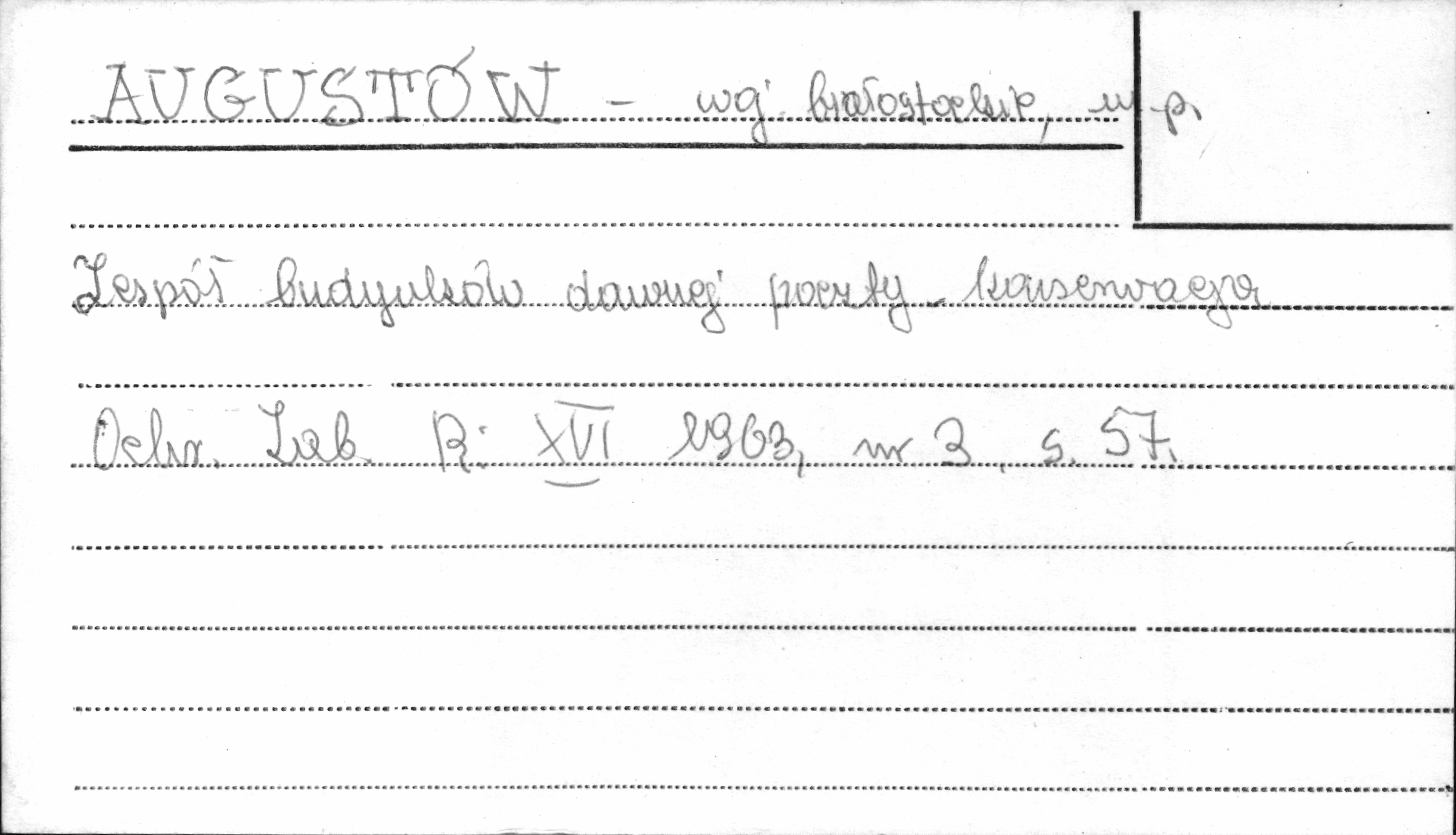 AUGUSTÓW - woj. białostockie, m. p.
Zespół budynków dawnej poczty - konserwacja
Ochr. Zab. R: XVI 1963, nr 3, s. 57.